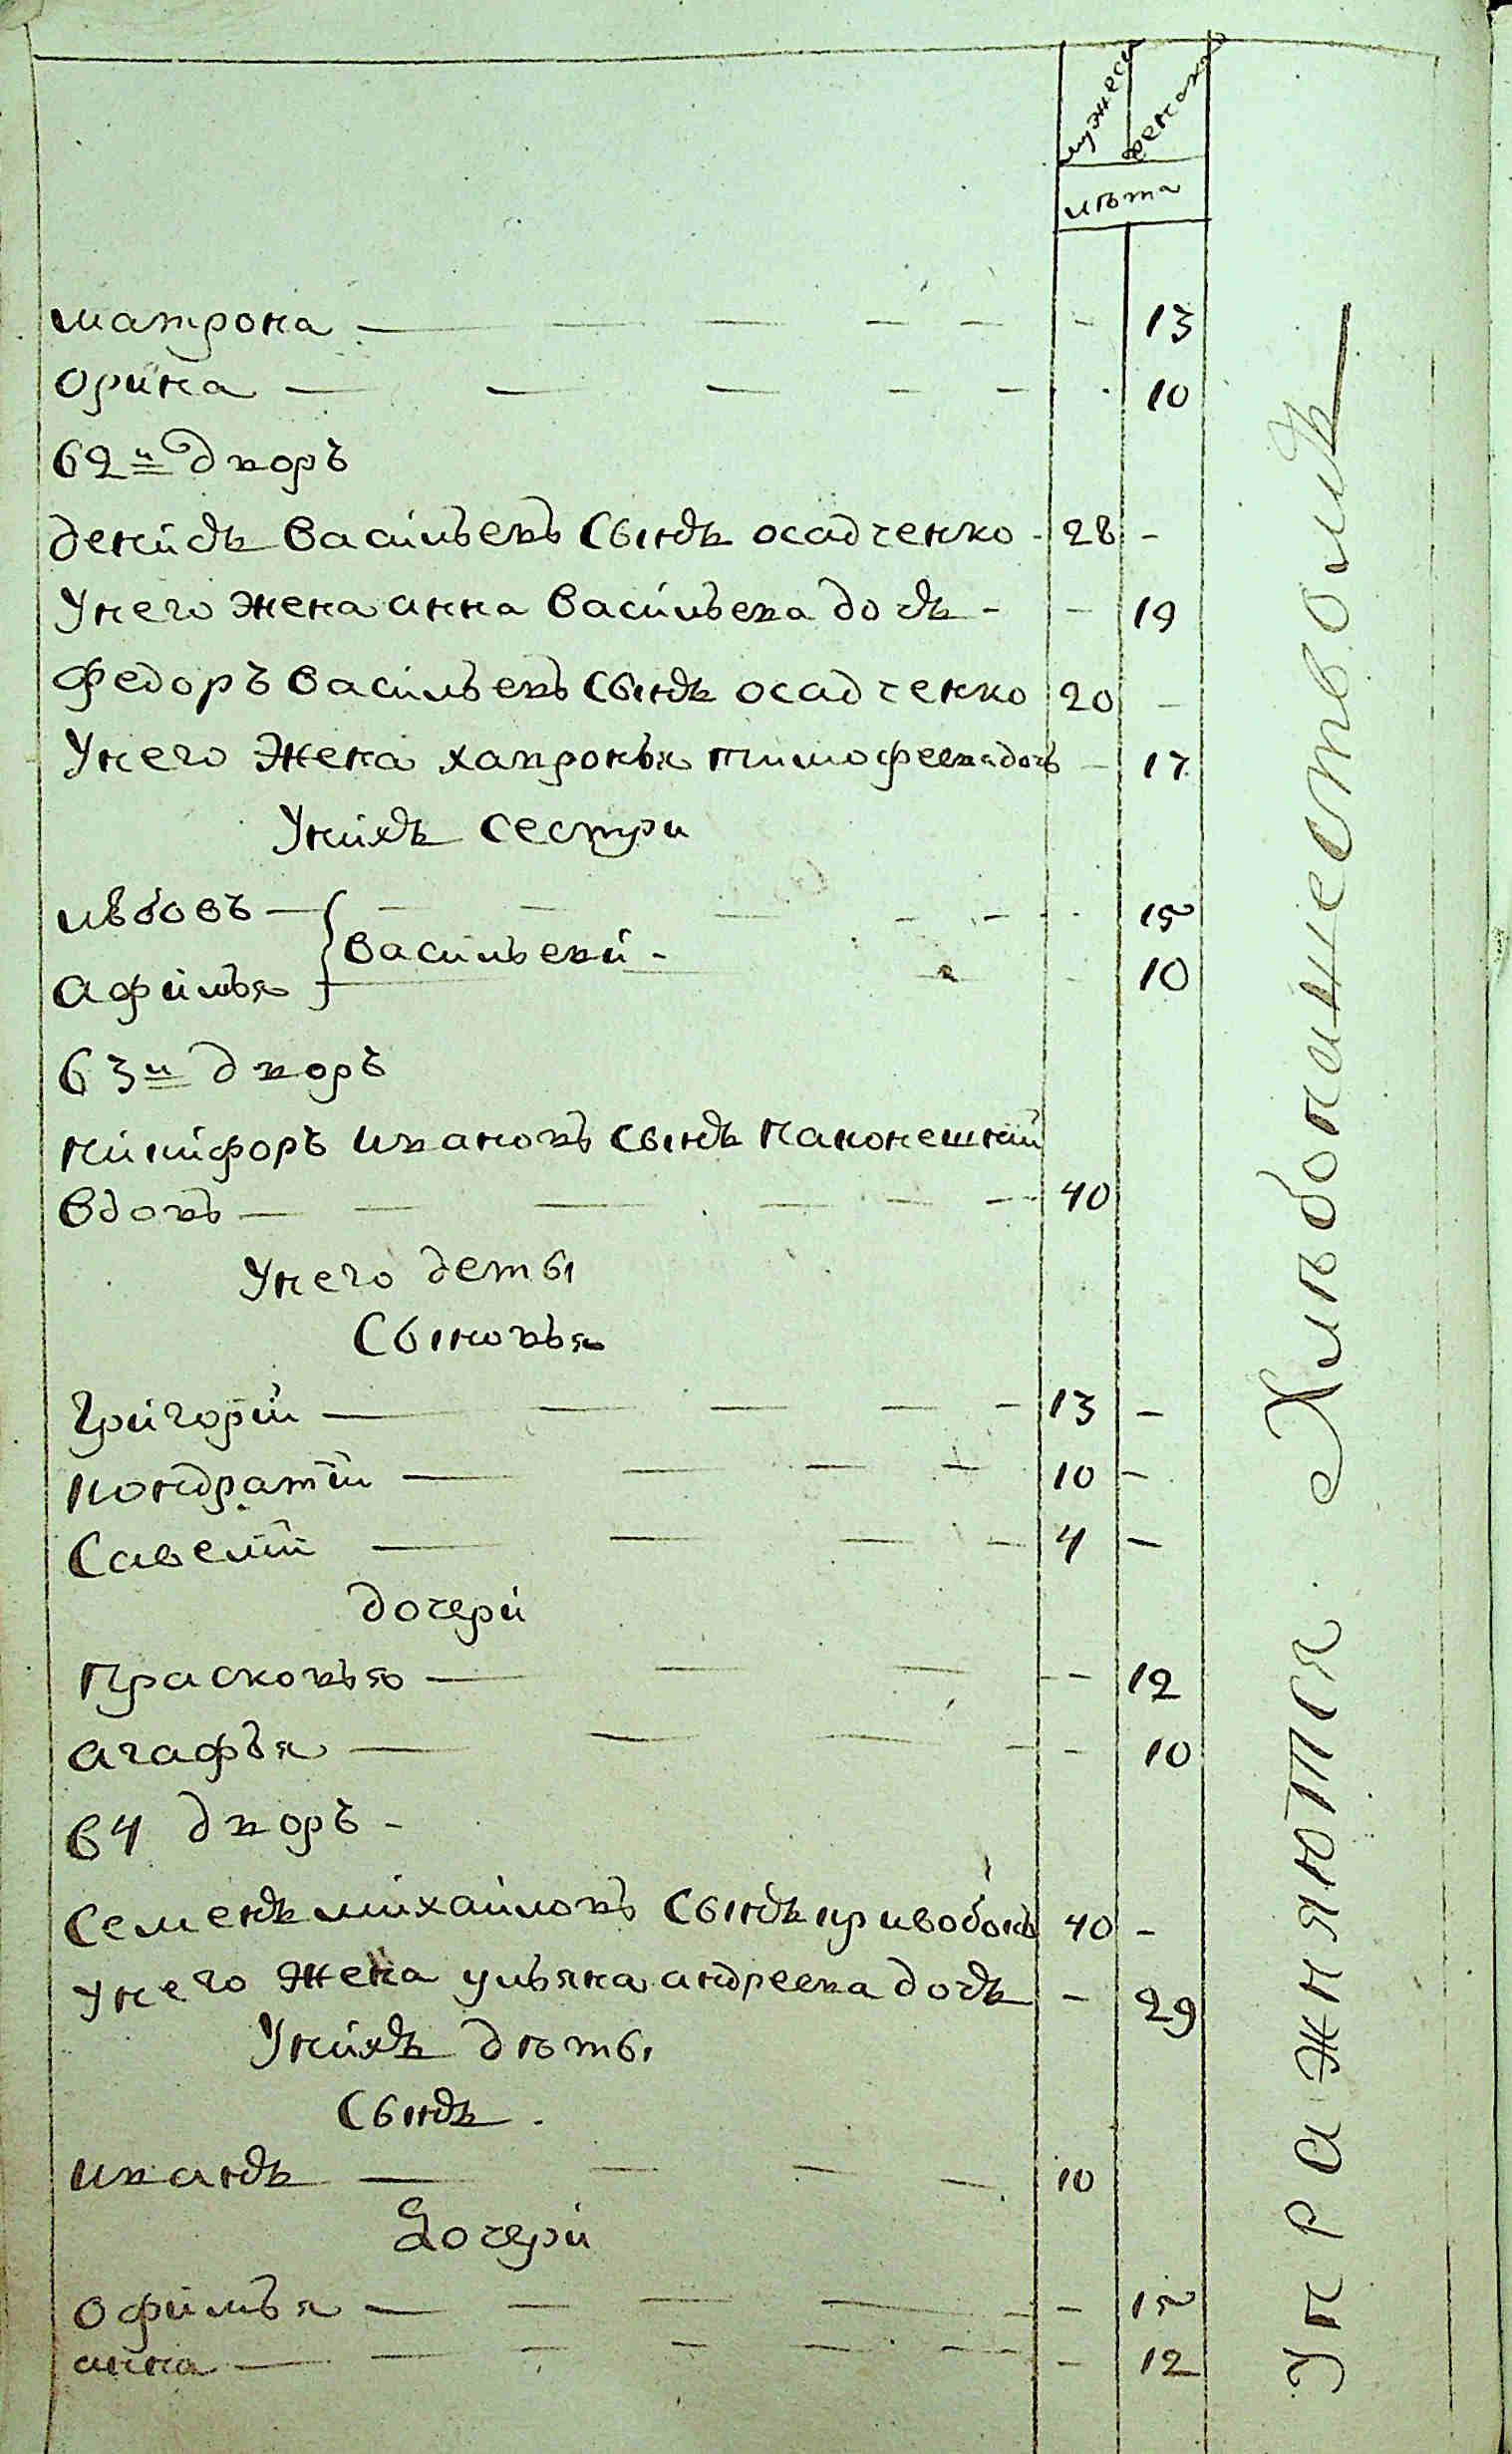 мужеск женска
лѣта
матрона — — — — — - 13
орина — — — — — - 10
62й дворъ
денисъ васильевъ сынъ осадченко - 28 -
Унего жена анна васильева дочь - - 19
федоръ васильевъ сынъ осадченко 20 -
Унего жена хавронья тимофеева дочь - 17
Унихъ сестри
лвбовъ — — — — — — - 15
васильеви -
афимья - 10
63й дворъ
никифоръ ивановъ сынъ
вдовъ — — — — — — 40
Унего деты
Сыновья
григорий — — — — — 13 -
кондратий — — — — 10 -
Савелий — — — — 4 -
дочери
Прасковья — — — - 12
агафья — — — — - 10
64 дворъ -
Семенъ михайловъ сынъ кривобокъ 40 -
Унего жена ульяна андреева дочь - 29
Унихъ дѣты
Сынъ -
иванъ — — — — 10
Дочери
офимья — — — — — - 15
анна — — — — — — - 12
Упражняются Хлѣбопашествомъ